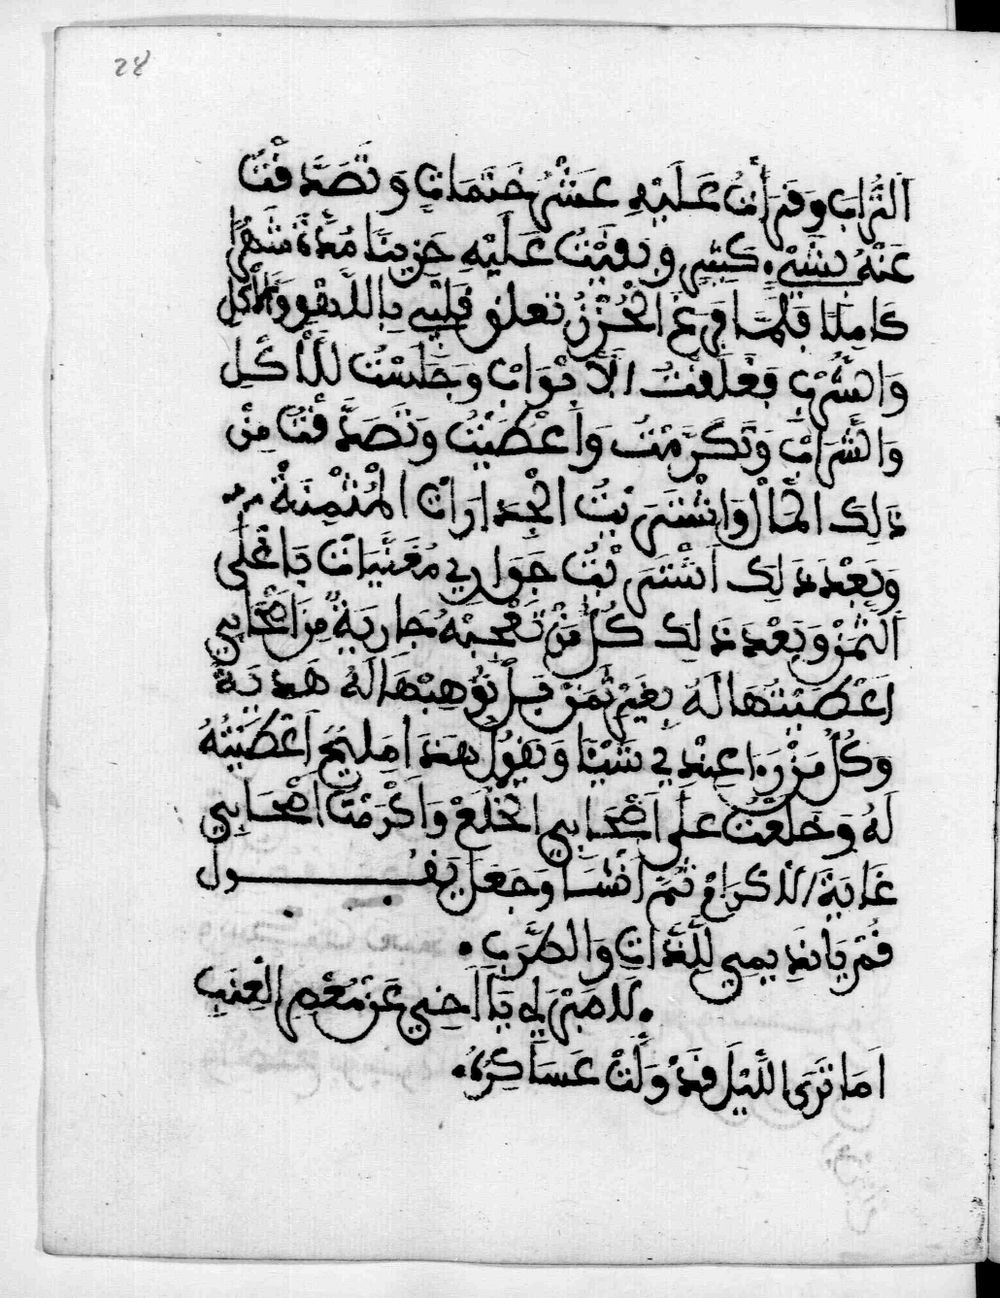 28
التُّرَابِ وَقَرَأْتُ عَلَيْهِ عَشْرُ خَتَمَاتٍ وَتَصَدَّقْتُ
عَنْهُ بِشَيْءٍ كَثِيرٍ وَبَقَيْتُ عَلَيْهِ حَزِينًا مُدَّةَ شَهْرًا
كَامِلًا فَلَمَّا فَرَغَ الْحُزْنُ تعلق قَلْبِي بِاللَّهْوِ وَالْأَكْلِ
وَالشُّرْبِ فَغَلَقْتُ الْأَبْوَابَ وَجَلَسْتُ لِلْأَكْلِ
وَالشَّرَابِ وَتَكَرَّمْتُ وَأَعْطَيْتُ وَتَصَدَّقْتُ مِنْ
ذَلِكَ الْمَالْ وَاشْتَرَيْتُ الْجِدَارَاتْ الْمُثْمِنَةْ
وَبَعْدَ ذَلِكَ اَشْتَرَيْتُ جَوَارِي مُغَنِّيَاتْ بَاغْلَى
الثَّمَنْ وَبَعْدَ ذَلِكَ كُلُّ مَنْ تَعْجِبُهُ جَارِيَةٌ مِنَ اَصْحَابِي
اَعْطَيْتُهَا لَهُ بِغَيْرِ ثَمَنْ بَلْ نُوهِبْهَا لَهُ هَدِيَةً
وَكُلُّ مَنْ رَءَا عِنْدِي شَيْئًا وَيَقُولُ هَذَا مَلِيحْ اَعْطَيْتُهُ
لَهُ وَخَلَعْتُ عَلَى اَصْحَابِي الْخُلَعْ وَاَكْرَمْتُ اَصْحَابِي
غَايَةَ الْاكْرَامْ ثُمَّ انْشَا وَجَعَلَ يَقُـــــول
قُمْ يَا نَدِيمِي لِلَّذَّاتِ وَالطَّرَبِ .
. لَا صَبْرَ لِي يَا أَخِي عَنْ مَعْصِرِ الْعِنَبِ
اَمَا تَرَى اللَّيْلَ قَدْ وَلَّتْ عَسَاكِرُهُ .